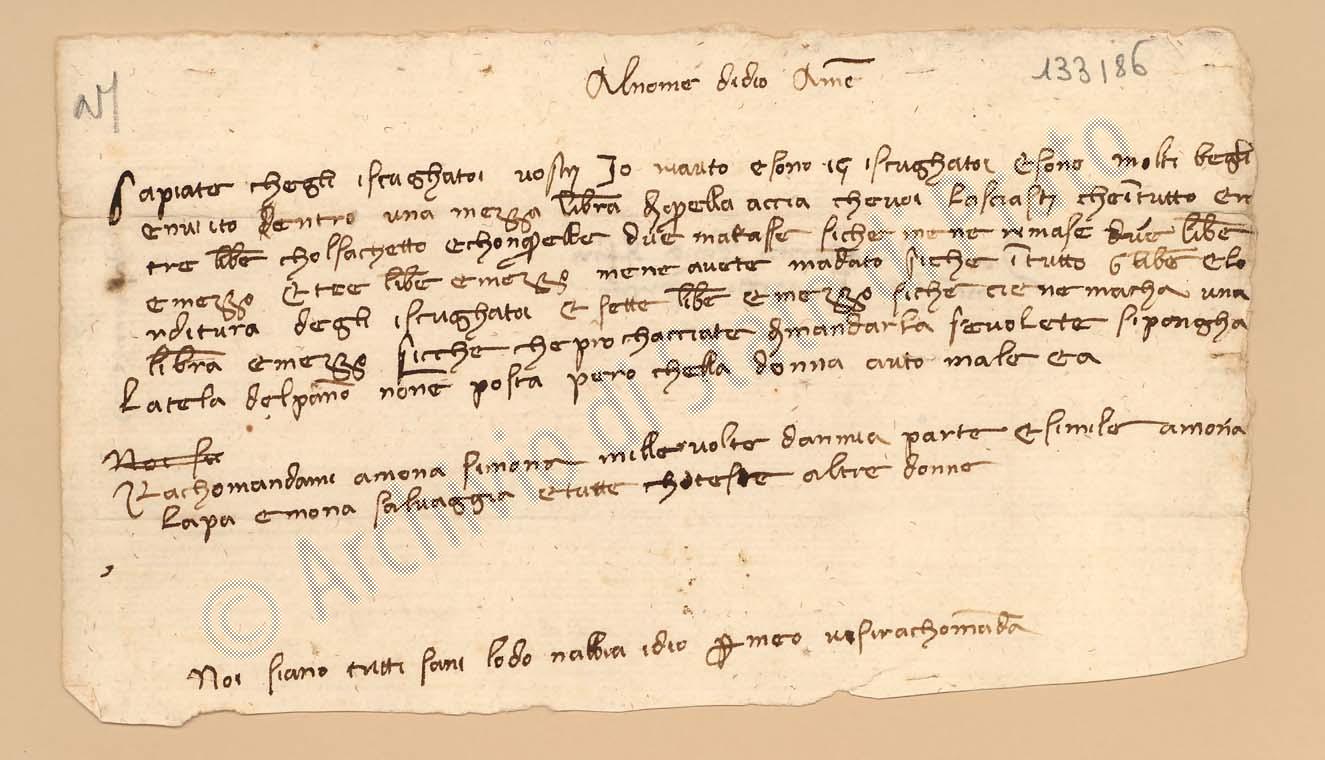 Al nome didio Amē
133186
Sapiate chegli isciughatoi vostri Io navuto esono 15 isciughatoi Esono molti begli
enviito dentro una mezza libra di quella accia chevoi lasciasti cheītutto en
tre libē cholsachetto echonquelle due matasse siche mene rimase due libē
emezzo Etre libē emezzo mene avete mādato siche ītutto 6 libē Elo
rditura degli isciughatoi E sette libē emezzo siche ciene macha una
libra emezzo sicche cheprochacciate dimandarla sevolete siponga
latela delpāno nōne posta pero chella donna auto male ea
Noi si
Rachomandami amona simona mille volte dannia parte Esimile amona
lapa emona salvaggia etutte choteste altre donne
Noi siano tutti sani lodo nabbia idio per meo visirachomāda
© Archivio di Stato Prato